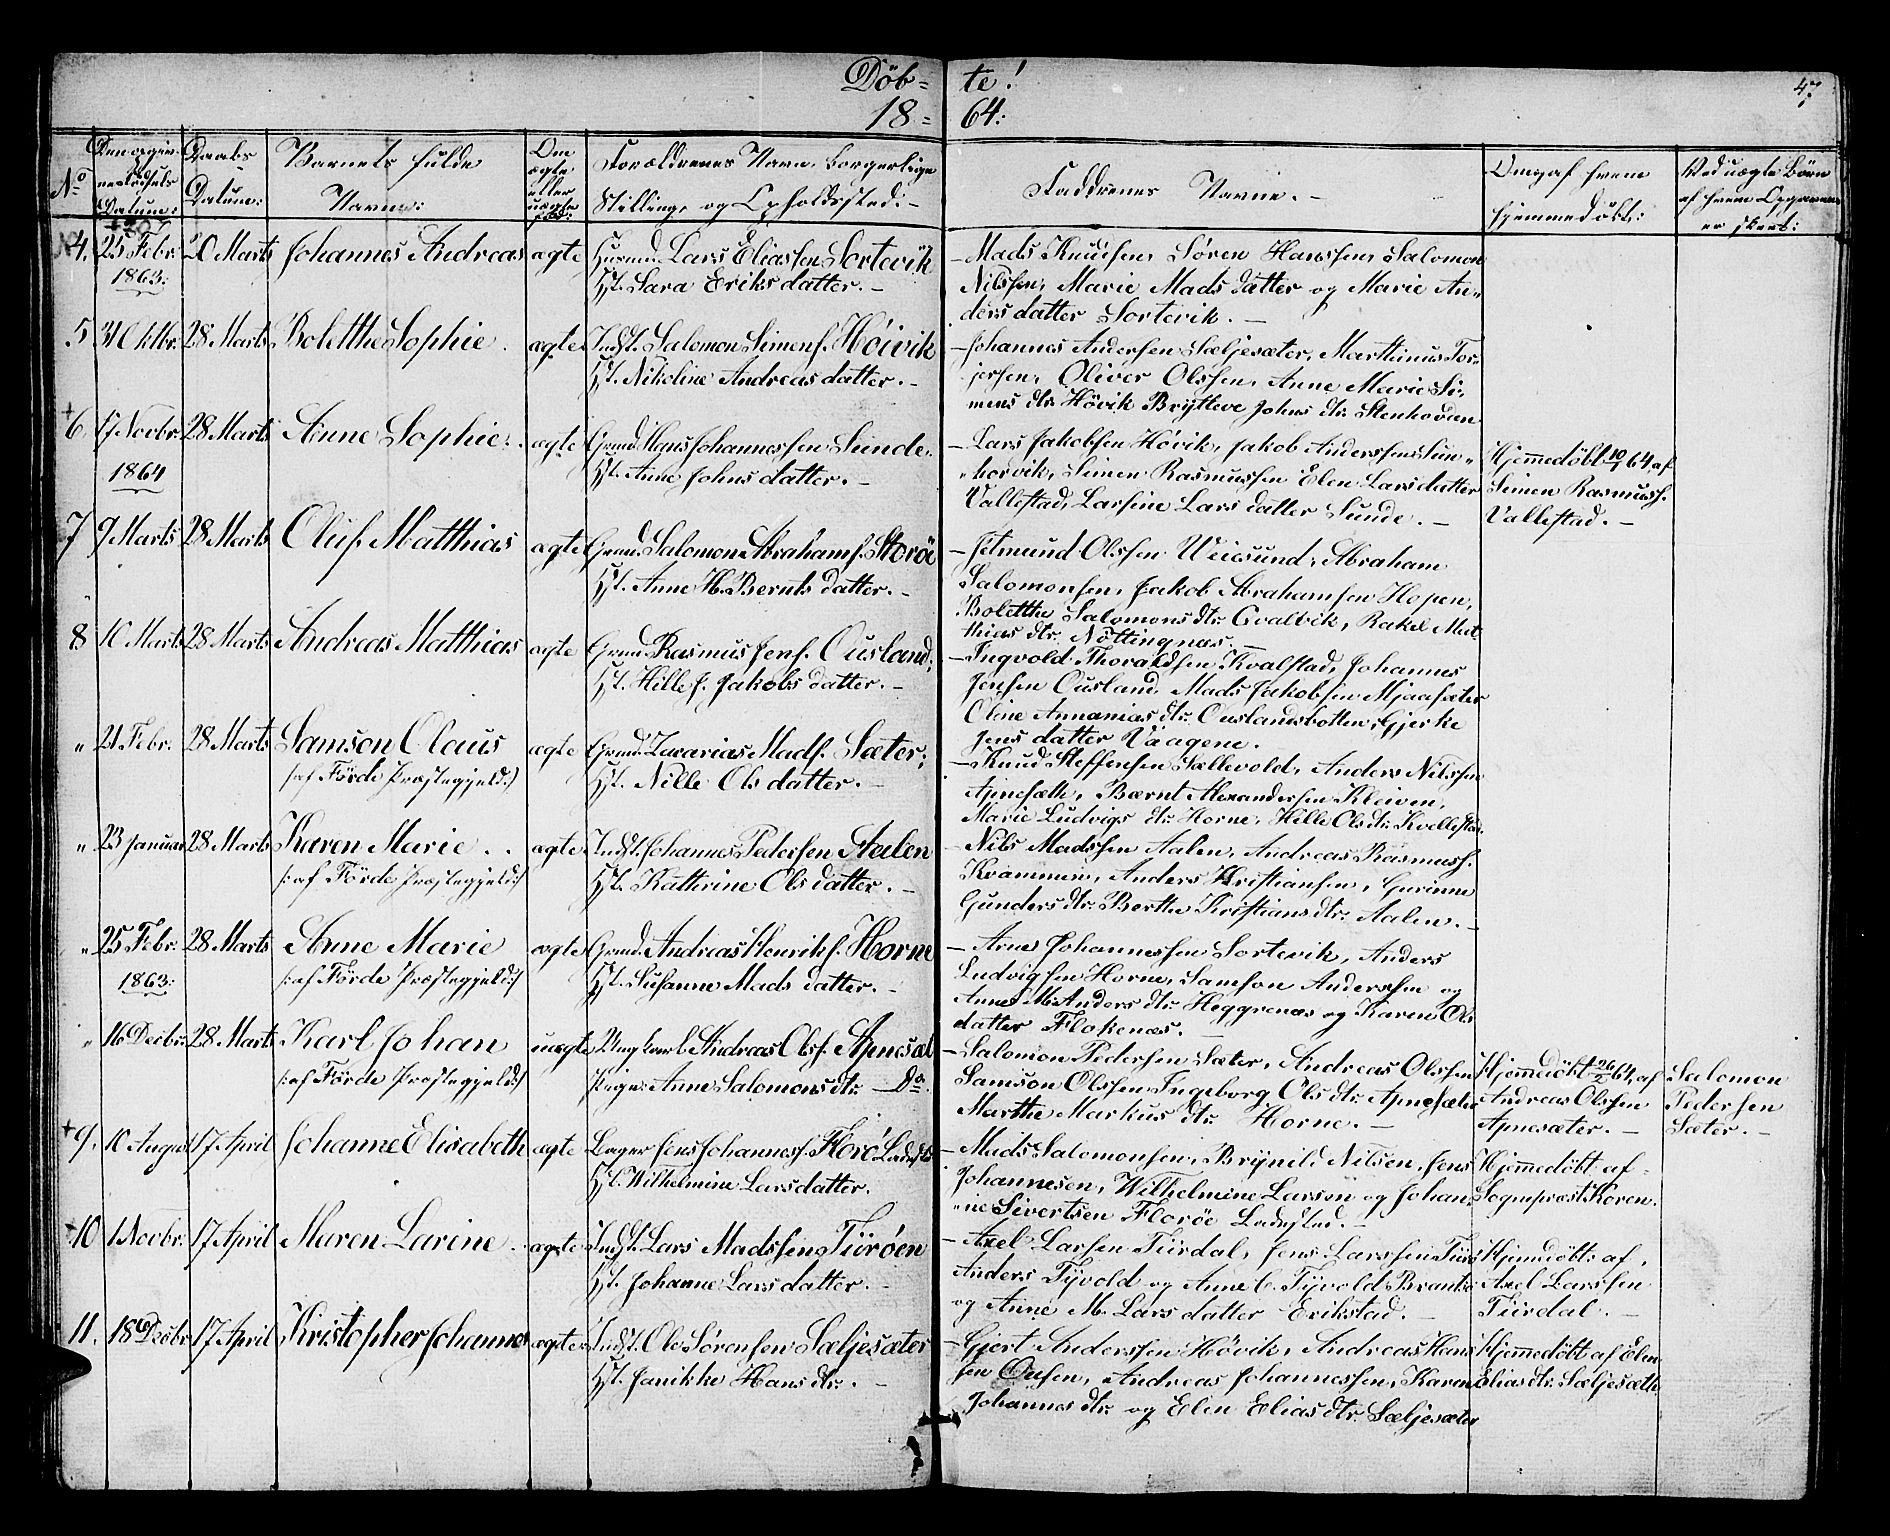 Döb= te!
47
18= 64:
No
Den opgiv-
ne Fødsels
Datum:
Daabs
Datum:
Barnets fulde
Navne:
Om
ægte
eller
uægte
fød:
Forældrenes Navn, borgerlige
Stilling, og Opholdssted:-
Faddrenes Navne.-
Om, af hvem
hjemmedöbt:
Ved uægte Börn
af hvem Opgaven
er skeet:
4, 25 Febr. 20 Marts Johannes Andreas ægte Husmd. Lars Eliassen Sortevik
1863: Hst. Sara Eriks datter.-
- Mads Knudsen, Søren Hanssen, Salomon
Nilssen, Marie Mads datter og Marie An-
ders datter Sortevik.-
5 31 Oktbr. 28 Marts Bolethe Sophie. ægte Indst. Salomon Simens. Höivik
Hst. Nikoline Andreas datter.-
- Johannes Andersen Sæljesæter, Marthinus Tor-
jersen, Oliver Olssen, Anne Marie Si-
mens dtr. Hövik Brytteve Johns dtr. Stenhovden
+
6. 17 Novbr. 28 Marts Anne Sophie. ægte Grmd. Hans Johannessen Sunde.
1864 Hst. Anne Johns datter.-
- Lars Jakobsen Hövik, Jakob Anderssen Sun-
horvik, Simen Rasmussen Elen Lars datter
Vallestad, Larsine Lars datter Sunde.-
Hjemmedöbt 10/1 64, af
Simen Rasmuss.
Vallestad.-
7 9 Marts 28 Marts Oluf Matthias ægte Grmd. Salomon Abrahams. Storöe
Hst. Anne H. Bernts datter.-
- Jetmund Olssen Weiesund, Abraham
Salomonsen, Jakob Abrahamsen Hopen,
Bolethe Salomons dtr. Gvalvik, Rakel Mat-
thias dtr. Nöttingnæs.-
8 10 Marts 28 Marts Andreas Matthias ægte Grmd. Rasmus Jens. Ousland,
Hst. Hille J. Jakobs datter.-
- Ingvold Thoraldsen Kvalstad, Johannes
Jensen Ousland, Mads Jakobsen Mjaasæter
Oline Annanias dtr. Ouslandsbotten, Gjerke
Jens datter Vaagene.
" 21 Febr. 28 Marts Samson Olaus ægte Grmd. Zacarias Mads. Sæter,
/:af Förde Præstegjeld:/ Hst. Nille Ols datter.-
- Knud Steffensen Sællevold, Anders Nilssen
Apnesæth, Bærnt Alexandersen Kleiven,
Marie Ludvigs dtr. Horne, Hille Ols dtr. Kvellestad.
" 23 Januar 28 Marts Karen Marie.. ægte Indst. Johannes Pedersen Aalen
/:af Förde Præstegjeld:/ Hst. Kathrine Ols datter.-
- Nils Madssen Aalen, Andreas Rasmuss.
Kvammen, Anders Kristiansen, Gurinne
Gunders dtr. Berthe Kristians dtr. Aalen.-
" 25 Febr. 28 Marts Anne Marie ægte Grmd. Andreas Henriks. Horne
1863: /:af Förde Præstegjeld:/ Hst. Susanne Mads datter.-
- Arne Johannessen Sortevik, Anders
Ludvigsen Horne, Samson Anderssen og
Anne M. Anders dtr. Heggrenæs og Karen Ols
datter Flokenæs.-
" 16 Decbr. 28 Marts Karl Johan uægte Ungkarl Andreas Ols. Apnesæt
/:af Förde Præstegjeld:/ Pige Anne Salomons dtr. - Do.
- Salomon Pedersen Sæter, Andreas Olssen
Samson Olssen, Ingeborg Ols dtr. Apnesæter
Marthe Markus dtr. Horne.-
Hjemmedöbt 26/2 64, af
Andreas Olssen
Apnesæter.-
Salomon
Pedersen
Sæter.-
+9. 10 August 17 April Johanne Elisabeth ægte Bager Jens Johanness. Florö Ladested
Hst. Wilhelmine Lars datter.
- Mads Salomonsen, Brynild Nilsen, Jens
Johannesen, Wilhelmine Larsen og Johan-
ne Sivertsen Floröe Ladested.-
Hjemmedöbt af
Sognepræst Koren.
+10 1 Novbr. 17 April Maren Larine. ægte Indst. Lars Madssen, Türöen
Hst. Johanne Lars datter.-
- Axel Larsen Türdal, Jens Larssen Türd
Anders Tyvold og Anne C. Tyvold Brantsö
og Anne M. Lars datter Erikstad.-
Hjemdöbt: af,
Axel Larssen
Türdal.-
11. 18 Decbr 17 April Kristopher Johannes ægte Indst. Ole Sörensen Sæljesæter
Hst. Janikke Hans dtr.-
- Gjert Anderssen Hövik, Andreas Hans
sen Ousen, Andreas Johannessen, Karen
Johannes dtr. og Elen Elias dtr. Sæljesæter
Hjemmedöbt af Elen
Elias dtr. Sæljesæth.